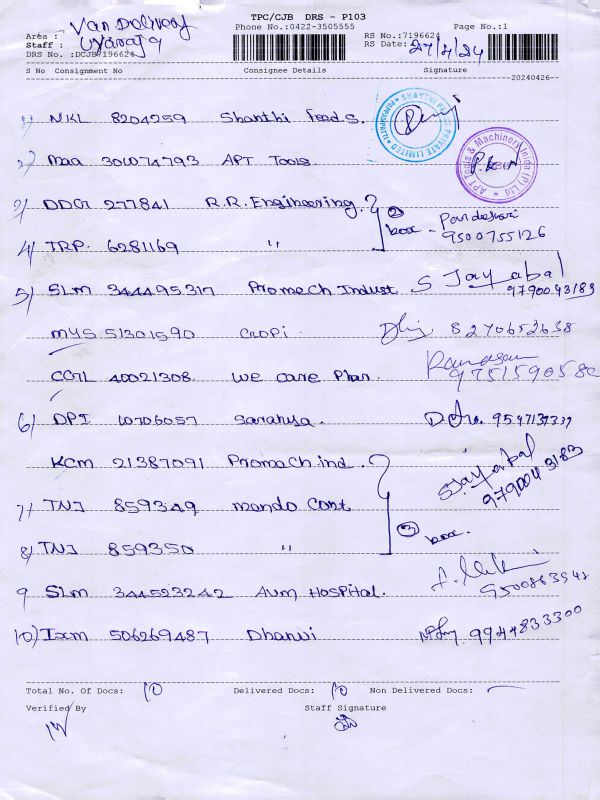 TPC/CJB DRS - P103
Van Delivery
Phone No.:0422-3505555 Page No.:1
Area :
Staff :
RS No.:7196624
RS Date: 27/4/24
DRS No. :DCJB7196624
S No Consignment No Consignee Details Signature
20240426--
1) NKL 8204259 Shanthi Feeds.
2) Maa 301074793 APT Tools
3) DDG 277841 R.R. Engineering. 2 box - 9500755126
4) TRP. 6281169 "
5) SLM 344495317 Promech Indust S Jayabal 9790043183
MYS 51301590 8270652638
CGL 40021308 We care Phar. 9751590580
6) DPI 10706057
KCM 21387091 Promach.ind. S. Jayabal 9790043183
7) TNJ 859349 mando Cont
8) TNJ 859350 " 3 box.
9 SLM 344523242 Avm Hospital.
10) Ixm 506269487 Dhanvi 9944833300
Total No. Of Docs: 10 Delivered Docs: 10 Non Delivered Docs: —
Verified By Staff Signature